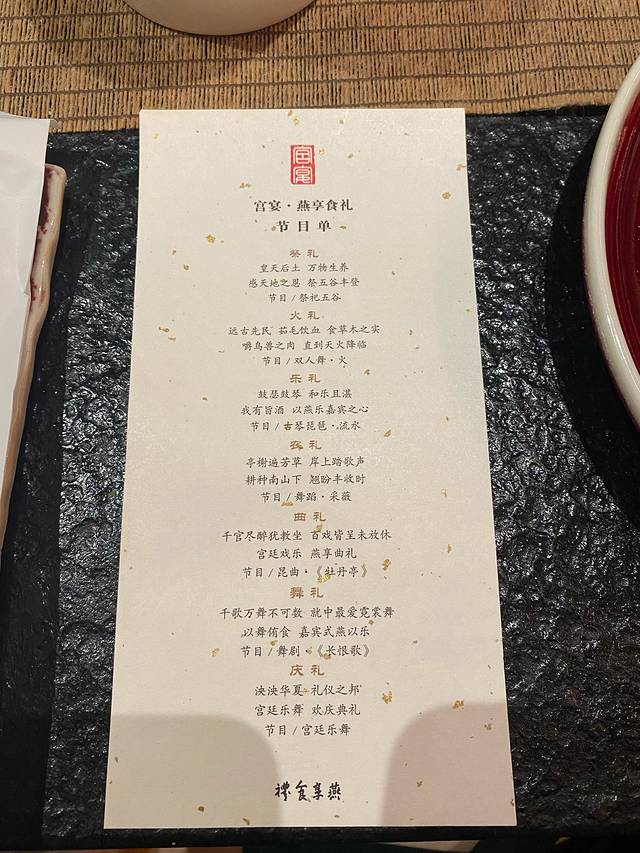 宫宴
宫宴·燕享食礼
节目单
祭礼
皇天后土 万物生养
感天地之恩 祭五谷丰登
节目/祭祀五谷
火礼
远古先民 茹毛饮血 食草木之实
嚼鸟兽之肉 直到天火降临
节目/双人舞·火
乐礼
鼓瑟鼓琴 和乐且湛
我有旨酒 以燕乐嘉宾之心
节目/古琴琵琶·流水
农礼
亭榭遍芳草 岸上踏歌声
耕种南山下 翘盼丰收时
节目/舞蹈·采薇
曲礼
千官尽醉犹教坐 百戏皆呈未放休
宫廷戏乐 燕享曲礼
节目/昆曲·《牡丹亭》
舞礼
千歌万舞不可数 就中最爱霓裳舞
以舞侑食 嘉宾式燕以乐
节目/舞剧·《长恨歌》
庆礼
泱泱华夏 礼仪之邦
宫廷乐舞 欢庆典礼
节目/宫廷乐舞
禮食享燕